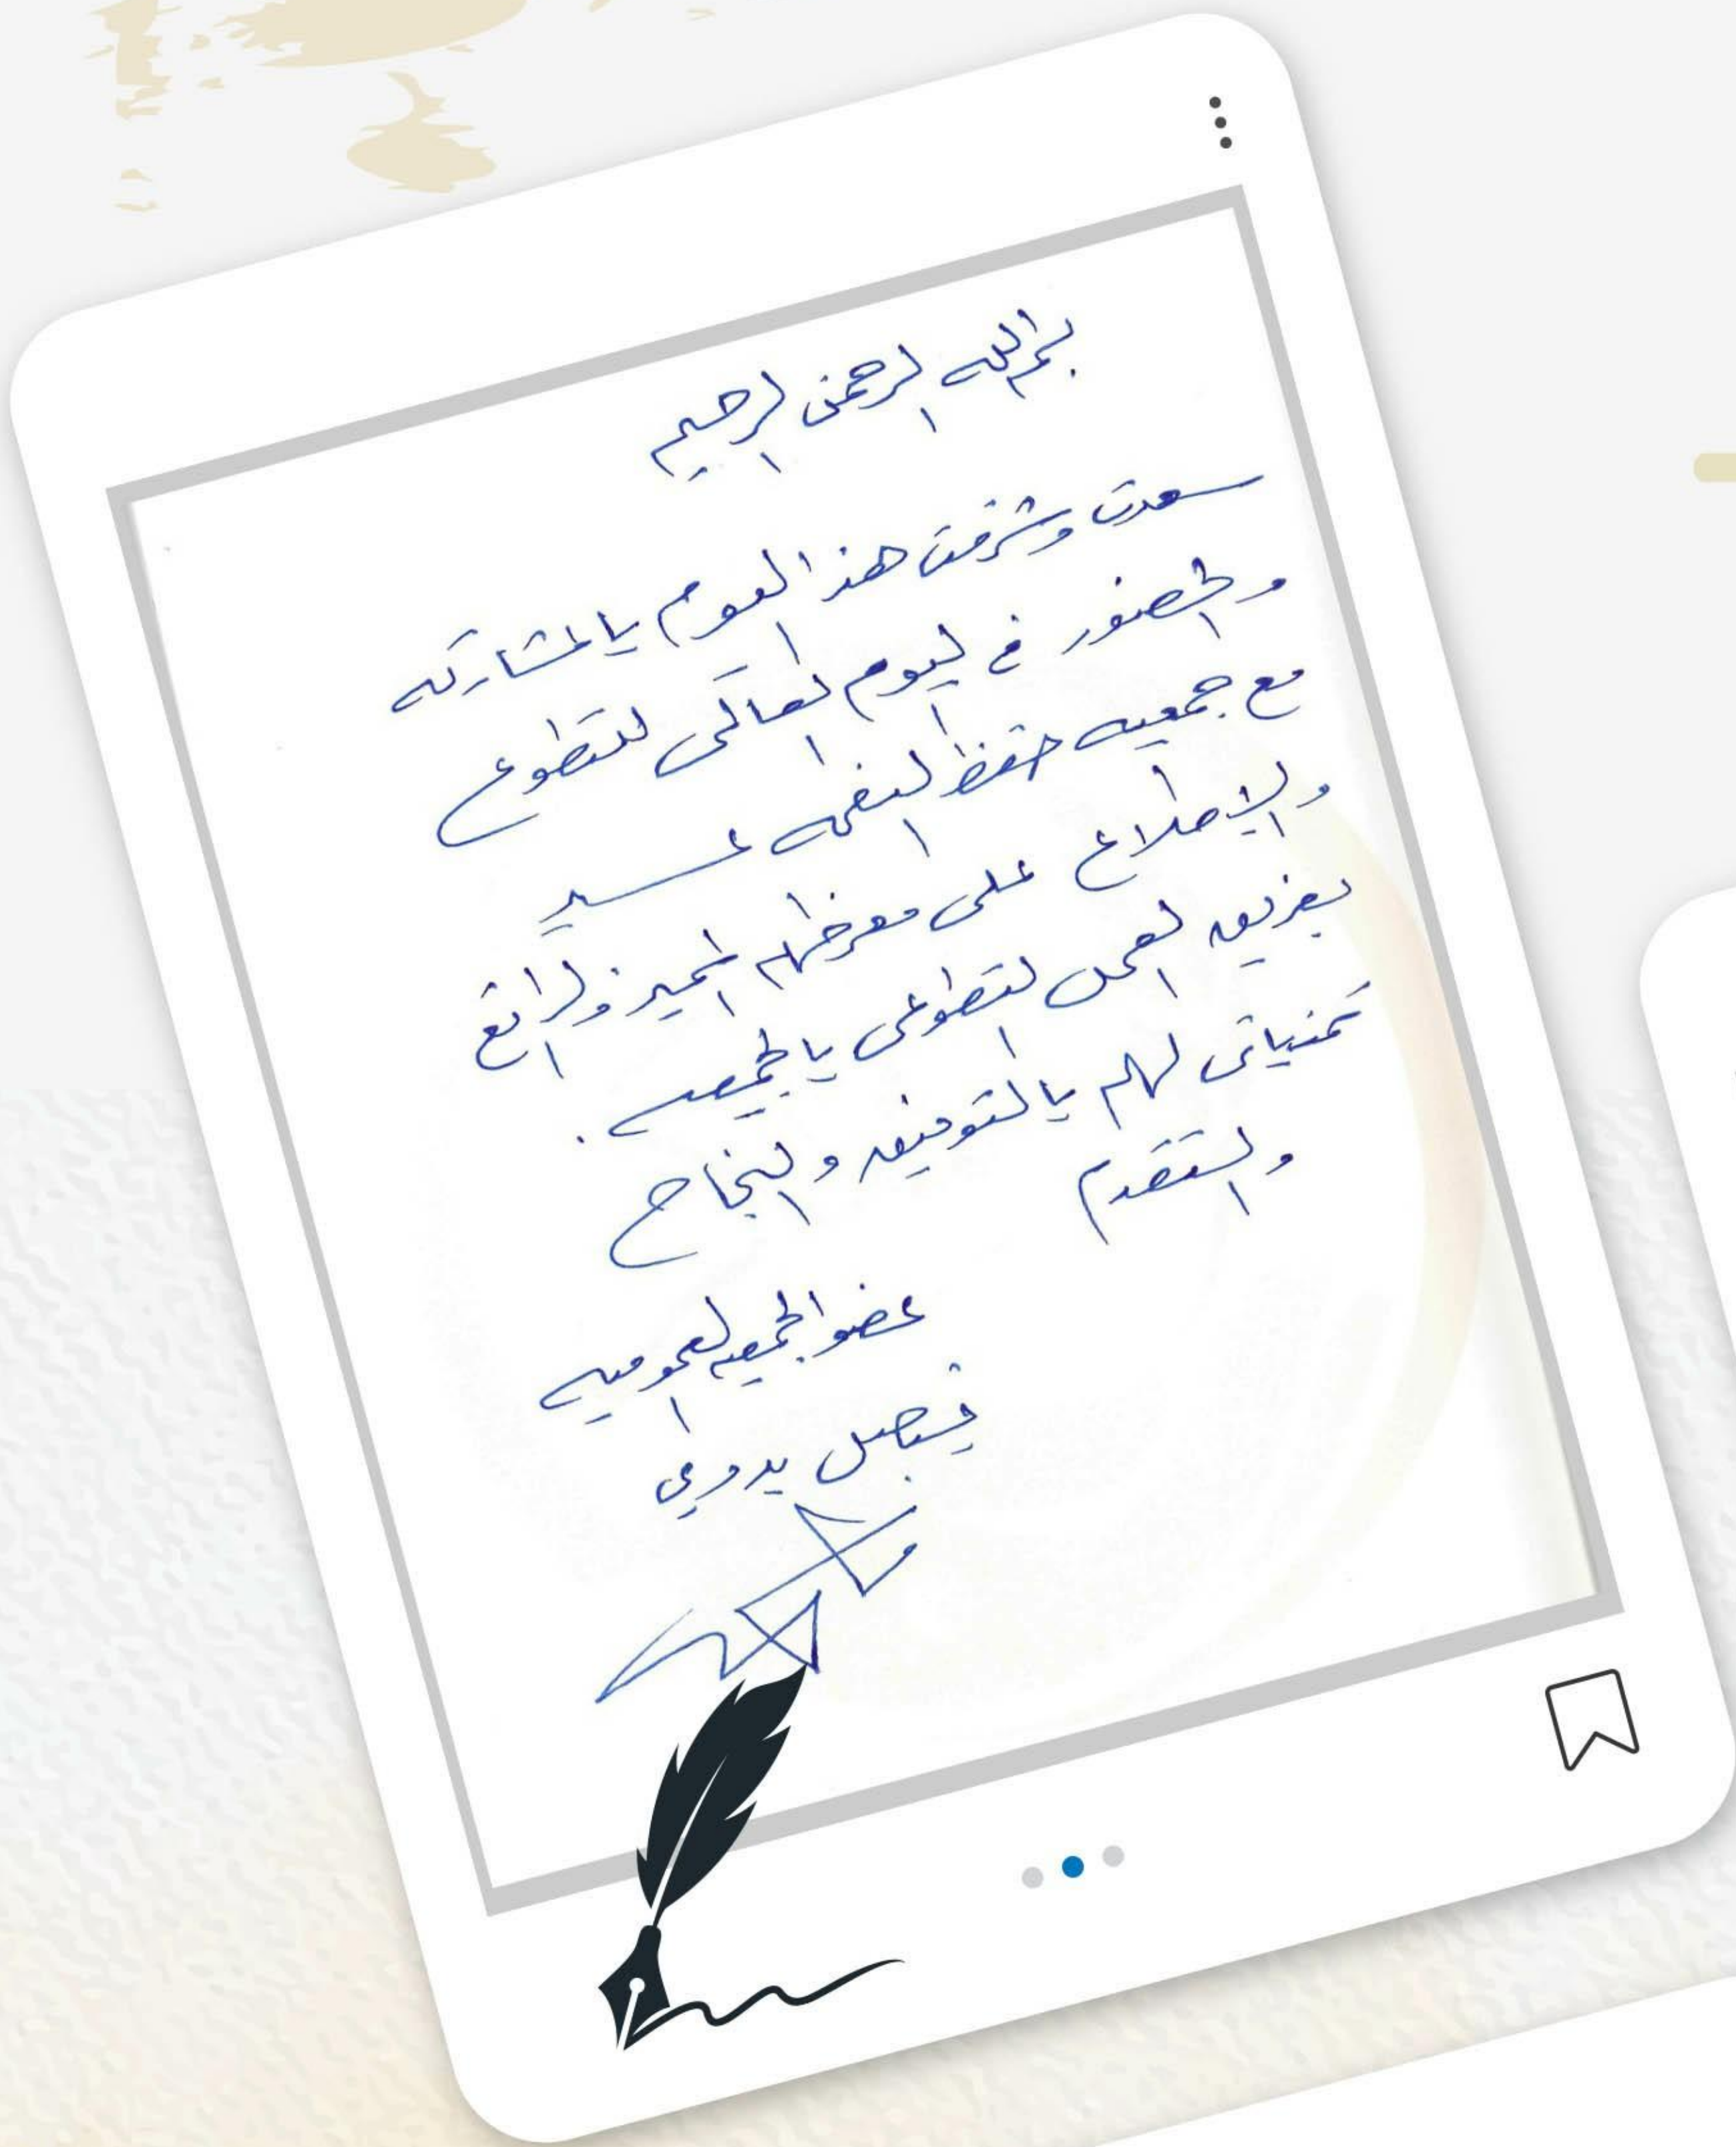 بسم الله الرحمن الرحيم
سعدت وشرفت هذا اليوم بالمشاركه
والحضور في اليوم العالمي للتطوع
مع جمعيه حفظ النعمه
والإطلاع على معرضهم المميز والرائع
بفريق العمل التطوعي بالجمعيه .
تمنياتي لهم بالتوفيق والنجاح
والتقدم
عضو الجمعيه العموميه
فيصل بدوي